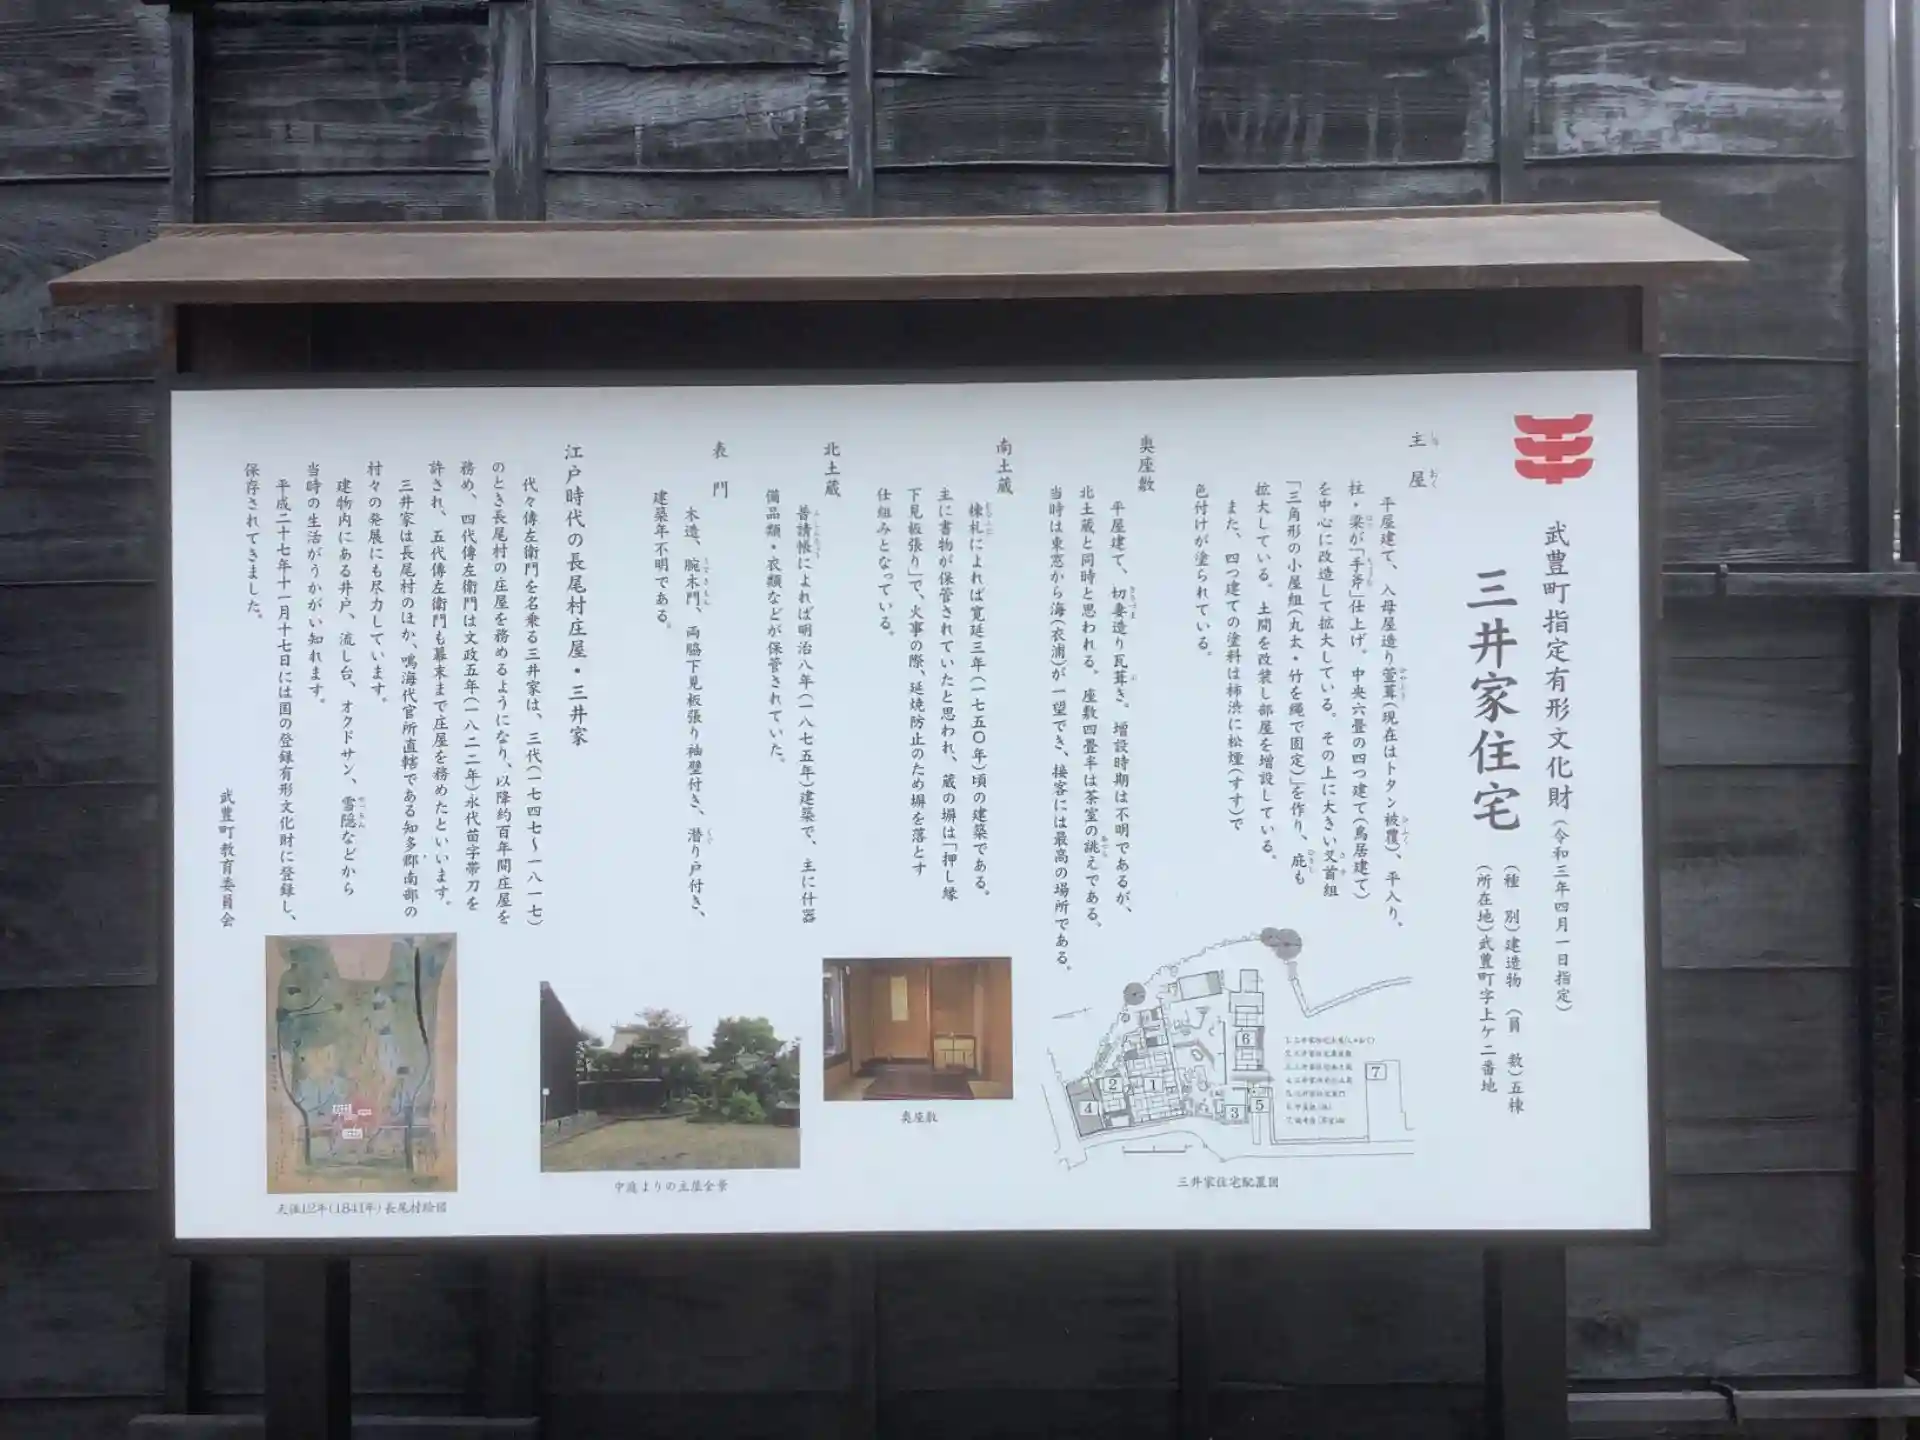 武豊町指定有形文化財(令和三年四月一日指定)
三井家住宅
(種 別)建造物 (員 数)五棟
(所在地)武豊町字上ケ二番地
主屋
平屋建て、入母屋造り萱葺(現在はトタン被覆)、平入り。
柱・梁が「手斧」仕上げ。中央六畳の四つ建て(鳥居建て)
を中心に改造して拡大している。その上に大きい叉首組
「三角形の小屋組(丸太・竹を縄で固定)」を作り、庇も
拡大している。土間を改装し部屋を増設している。
また、四つ建ての塗料は柿渋に松煙(すす)で
色付けが塗られている。
奥座敷
平屋建て、切妻造り瓦葺き。増設時期は不明であるが、
北土蔵と同時と思われる。座敷四畳半は茶室の誂えである。
当時は東窓から海(衣浦)が一望でき、接客には最高の場所である。
南土蔵
棟札によれば寛延三年(一七五〇年)頃の建築である。
主に書物が保管されていたと思われ、蔵の塀は「押し縁
下見板張り」で、火事の際、延焼防止のため塀を落とす
仕組みとなっている。
北土蔵
普請帳によれば明治八年(一八七五年)建築で、主に什器
備品類・衣類などが保管されていた。
表門
木造、腕木門、両脇下見板張り袖壁付き、潜り戸付き、
建築年不明である。
江戸時代の長尾村庄屋・三井家
代々傳左衛門を名乗る三井家は、三代(一七四七〜一八一七)
のとき長尾村の庄屋を務めるようになり、以降約百年間庄屋を
務め、四代傳左衛門は文政五年(一八二二年)永代苗字帯刀を
許され、五代傳左衛門も幕末まで庄屋を務めたといいます。
三井家は長尾村のほか、鳴海代官所直轄である知多郡南部の
村々の発展にも尽力しています。
建物内にある井戸、流し台、オクドサン、雪隠などから
当時の生活がうかがい知れます。
平成二十七年十一月十七日には国の登録有形文化財に登録し、
保存されてきました。
武豊町教育委員会
1
2
3
4
5
6
7
三井家住宅配置図
奥座敷
中庭よりの主屋全景
天保12年(1841年)長尾村絵図